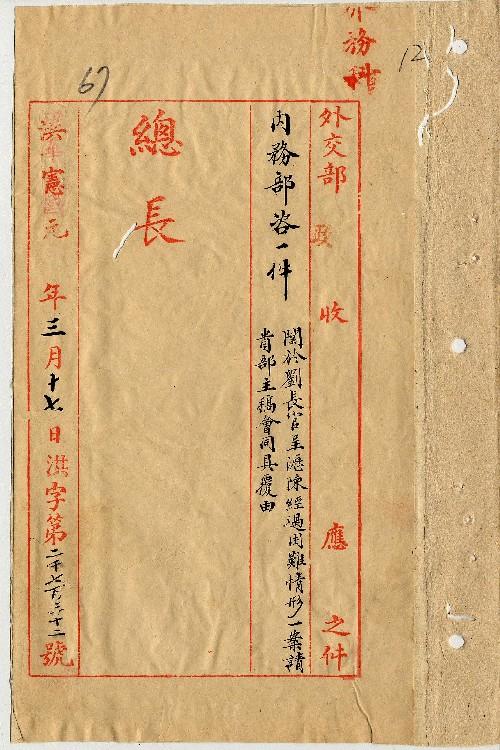 12
67
務科
外交部 政 收 應 之件
內務部咨一件
關於劉長官呈瀝陳經過困難情形一案請
貴部主稿會同具覆由
總長
洪憲元年三月十七日洪字第二千七百三十二號